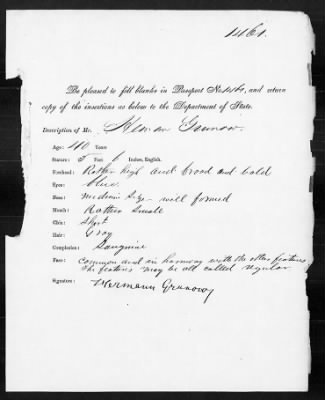 14161.
Be pleased to fill blanks in Passport No. 14161, and return
copy of the insertions as below to the Department of State.
Description of Mr. Herman Grunow.
Age: 40 Years
Stature: 5 Feet 6 Inches, English.
Forehead: Rather high and broad and bald
Eyes: blue.
Nose: medium size - well formed
Mouth: Rather Small
Chin: Short
Hair: Gray
Complexion: Sanguine
Face: common and in harmony with the other features,
The features may be all called regular
Signature: Hermann Grunow